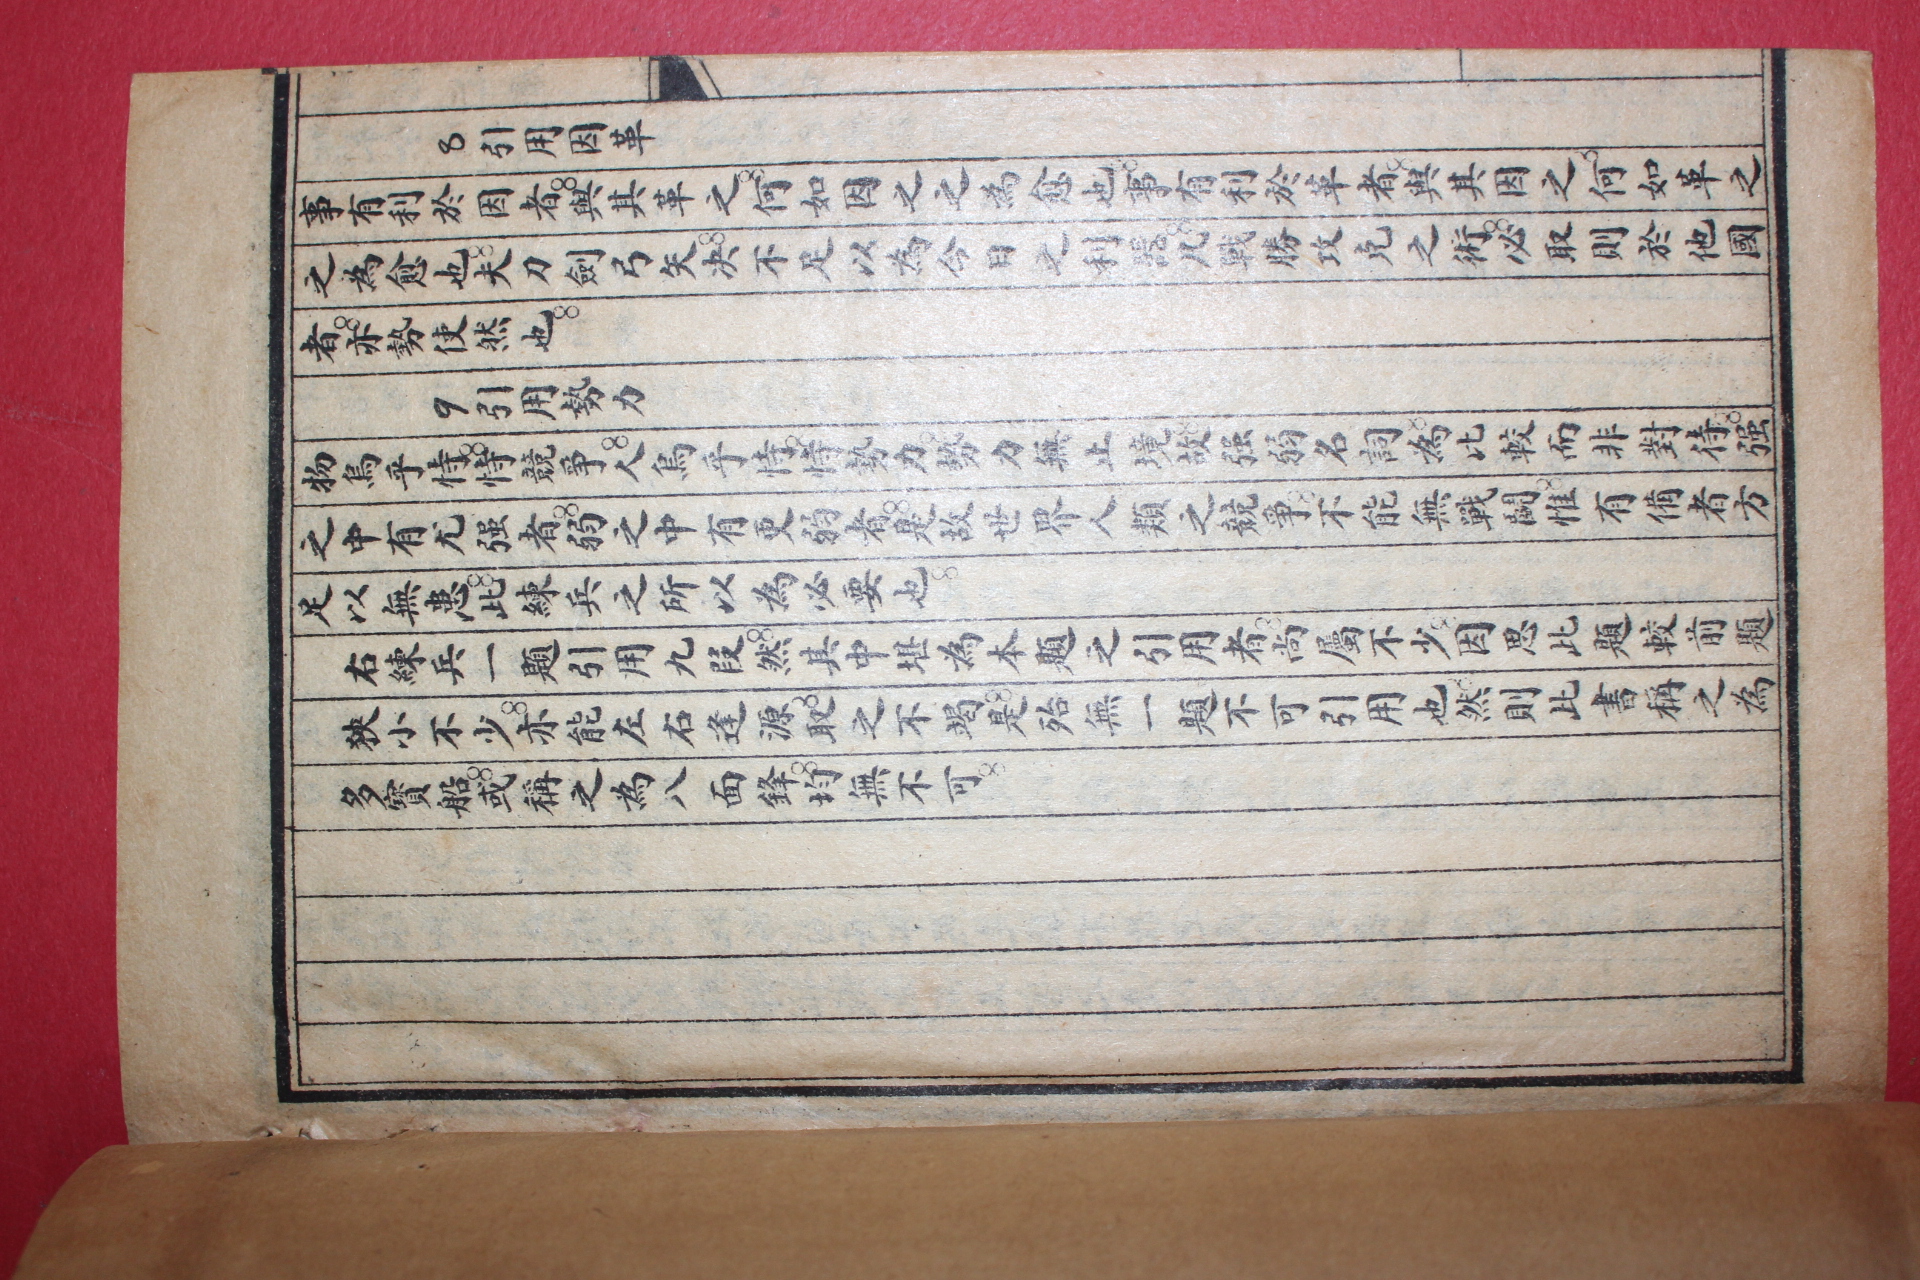 8 引用因革
事有利於因者與其革之何如因之之為愈也事有利於革者與其因之何如革之
之為愈也夫刀劍弓矢決不足以為今日之利器凡戰勝攻克之術必取則於他國
者亦勢使然也
9 引用勢力
物烏乎恃恃競爭人烏乎恃恃勢力勢力無止境故强弱名詞為比較而非對待强
之中有尤强者弱之中有更弱者是故世界人類之競爭不能無戰鬬惟有備者方
足以無患此練兵之所以為必要也
右練兵一題引用九段然其中堪為本題之引用者尚屬不少因思此題較前題
狹小不少亦能左右逢源取之不竭是殆無一題不可引用也然則此書稱之為
多寶船或稱之為八面鋒均無不可